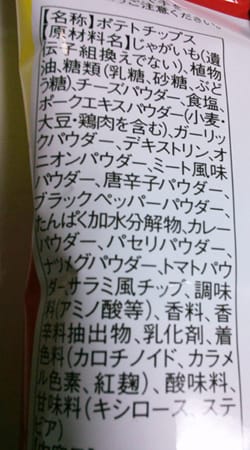 ご注意ください。
【名称】ポテトチップス
【原材料名】じゃがいも(遺
伝子組換えでない)、植物
油、糖類(乳糖、砂糖、ぶど
う糖)、チーズパウダー、食塩、
ポークエキスパウダー(小麦・
大豆・鶏肉を含む)、ガーリッ
クパウダー、デキストリン、オ
ニオンパウダー、ミート風味
パウダー、唐辛子パウダー、
ブラックペッパーパウダー、
たんぱく加水分解物、カレー
パウダー、パセリパウダー、
ナツメグパウダー、トマトパウ
ダー、サラミ風チップ、調味
料(アミノ酸等)、香料、香
辛料抽出物、乳化剤、着
色料(カロチノイド、カラメ
ル色素、紅麹)、酸味料、
甘味料(キシロース、ステ
ビア)